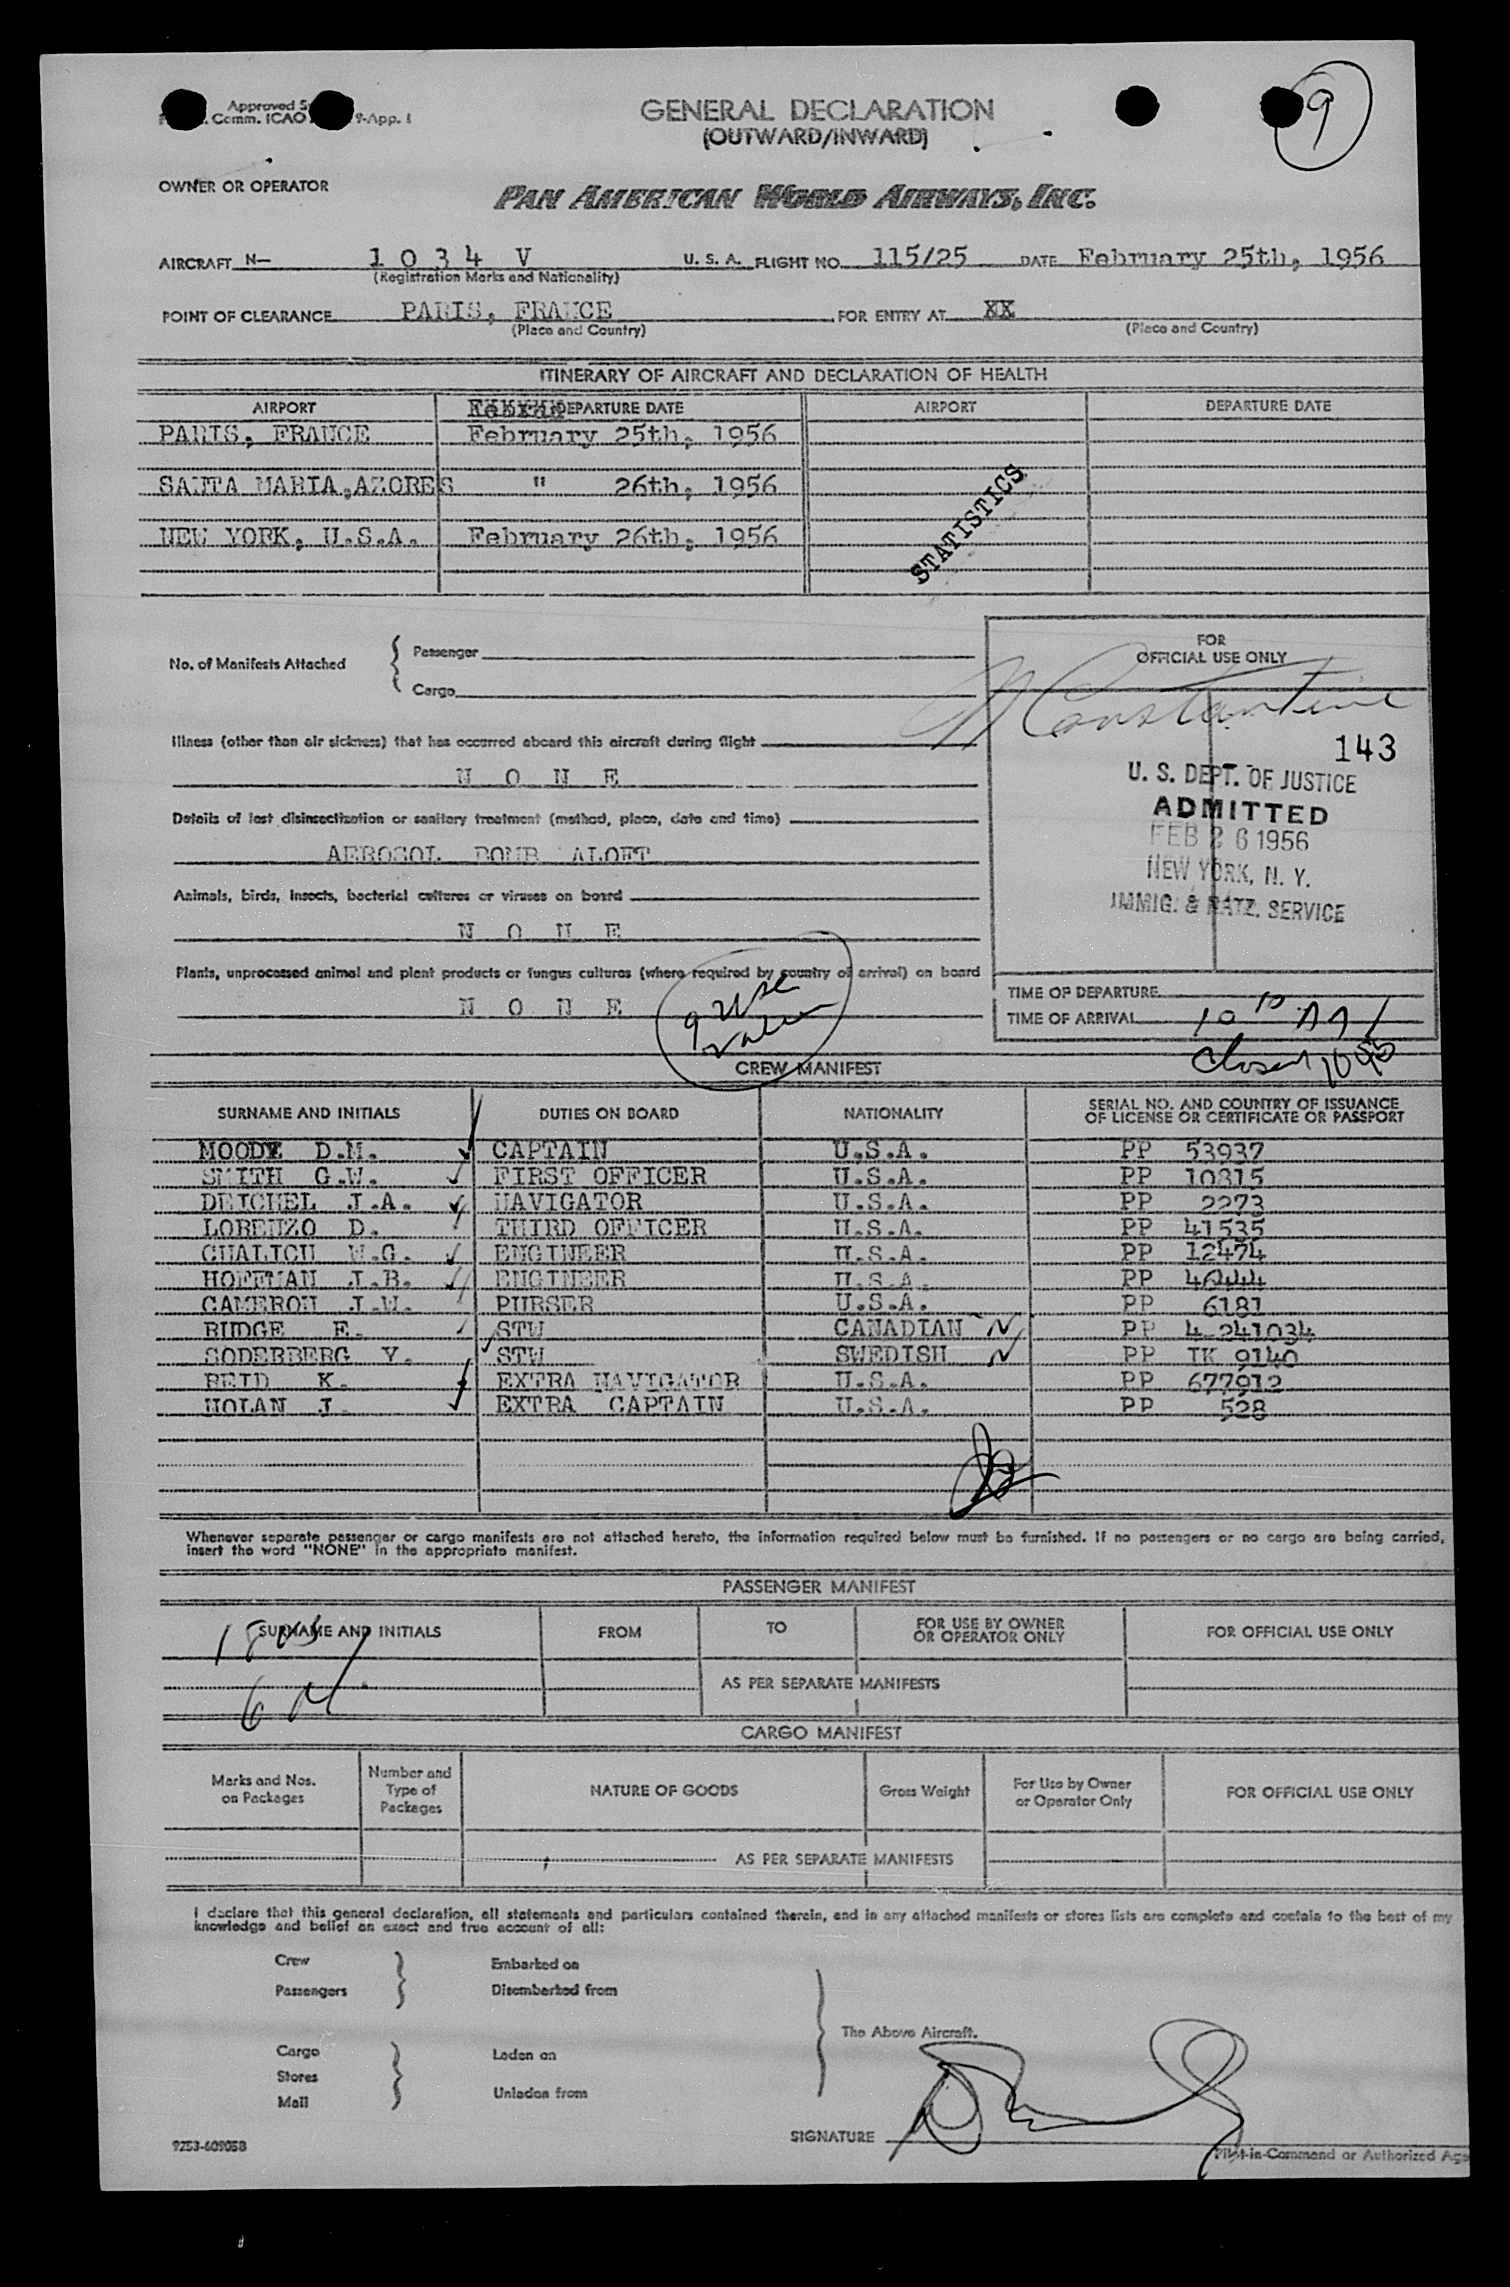 Approved
Comm. ICAO 9-App. 1
GENERAL DECLARATION
(OUTWARD/INWARD)
9
OWNER OR OPERATOR
PAN AMERICAN WORLD AIRWAYS, INC.
AIRCRAFT N— 1 0 3 4 V U. S. A. FLIGHT NO. 115/25 DATE February 25th, 1956
(Registration Marks and Nationality)
POINT OF CLEARANCE PARIS, FRANCE FOR ENTRY AT XX
(Place and Country) (Place and Country)
ITINERARY OF AIRCRAFT AND DECLARATION OF HEALTH
AIRPORT DEPARTURE DATE AIRPORT DEPARTURE DATE
PARIS, FRANCE February 25th, 1956
SANTA MARIA,AZORES " 26th, 1956
NEW YORK, U.S.A. February 26th, 1956
STATISTICS
No. of Manifests Attached { Passenger
Cargo
FOR
OFFICIAL USE ONLY
Constantine
143
U. S. DEPT. OF JUSTICE
ADMITTED
FEB 26 1956
NEW YORK, N. Y.
IMMIG. & NATZ. SERVICE
Illness (other than air sickness) that has occurred aboard this aircraft during flight
N O N E
Details of last disinsectization or sanitary treatment (method, place, date and time)
AEROSOL BOMB ALOFT
Animals, birds, insects, bacterial cultures or viruses on board
N O N E
Plants, unprocessed animal and plant products or fungus cultures (where required by country of arrival) on board
N O N E
9 USC
TIME OF DEPARTURE
TIME OF ARRIVAL 10 10 AM
Closed 1045
CREW MANIFEST
SURNAME AND INITIALS DUTIES ON BOARD NATIONALITY SERIAL NO. AND COUNTRY OF ISSUANCE
OF LICENSE OR CERTIFICATE OR PASSPORT
MOODY D.M. CAPTAIN U.S.A. PP 53937
SMITH G.W. FIRST OFFICER U.S.A. PP 10815
DEICHEL J.A. NAVIGATOR U.S.A. PP 2273
LORENZO D. THIRD OFFICER U.S.A. PP 41535
CHALICH W.G. ENGINEER U.S.A. PP 12474
HOFFMAN J.B. ENGINEER U.S.A. PP 46444
CAMERON J.W. PURSER U.S.A. PP 6181
BUDGE E. STW CANADIAN N PP 4-241034
SODERBERG Y. STW SWEDISH N PP IK 9140
REID K. EXTRA NAVIGATOR U.S.A. PP 677912
NOLAN J. EXTRA CAPTAIN U.S.A. PP 528
Whenever separate passenger or cargo manifests are not attached hereto, the information required below must be furnished. If no passengers or no cargo are being carried,
insert the word "NONE" in the appropriate manifest.
PASSENGER MANIFEST
SURNAME AND INITIALS FROM TO FOR USE BY OWNER
OR OPERATOR ONLY FOR OFFICIAL USE ONLY
AS PER SEPARATE MANIFESTS
CARGO MANIFEST
Marks and Nos.
on Packages Number and
Type of
Packages NATURE OF GOODS Gross Weight For Use by Owner
or Operator Only FOR OFFICIAL USE ONLY
AS PER SEPARATE MANIFESTS
I declare that this general declaration, all statements and particulars contained therein, and in any attached manifests or stores lists are complete and contain to the best of my
knowledge and belief an exact and true account of all:
Crew Embarked on
Passengers Disembarked from
The Above Aircraft.
Cargo Laden on
Stores
Mail Unladen from
SIGNATURE
Pilot-in-Command or Authorized Age
9253-609058